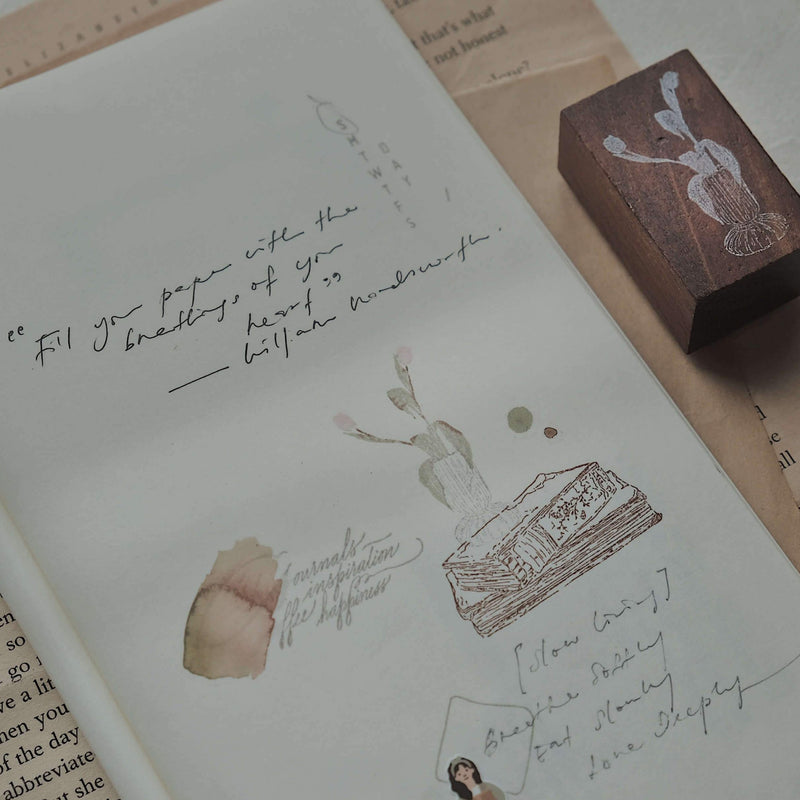 ELIZABETH
that's what
not honest
alone?
DAY
SMTWTFS
“Fill your paper with the
breathings of your
heart”
— William Wordsworth.
ournals
inspiration
ffee happiness
[Slow living]
Breathe Softly
Eat Slowly
Love Deeply
so
go
ve a lit
hen you
of the day
abbreviate
but she
all